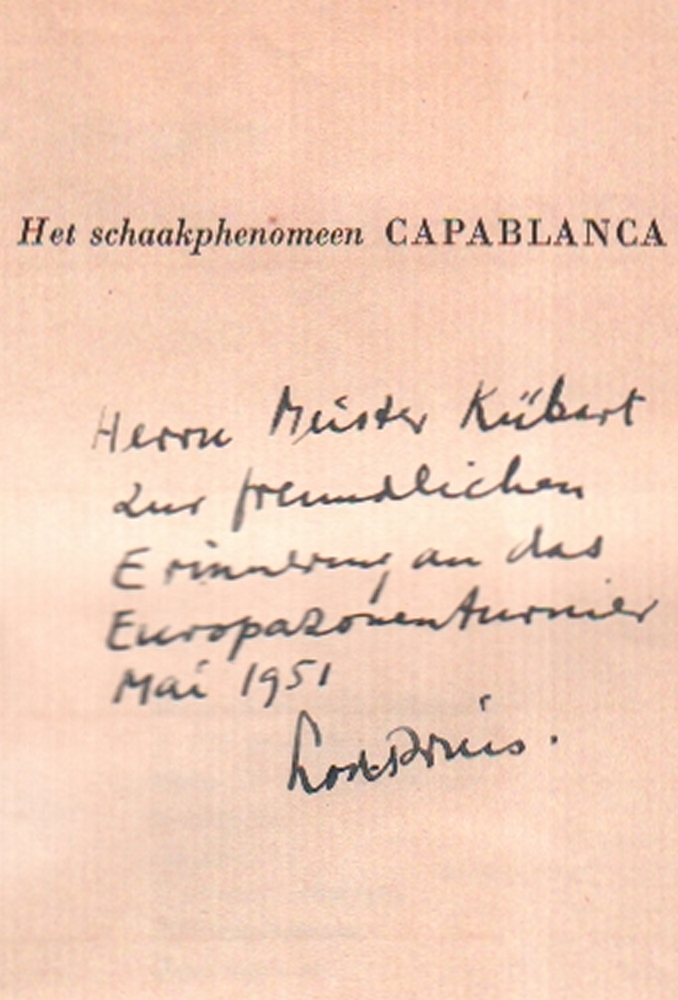 Het schaakphenomeen CAPABLANCA
Herrn Meister Kübart
zur freundlichen
Erinnerung an das
Europazonenturnier
Mai 1951
Lod. Prins.